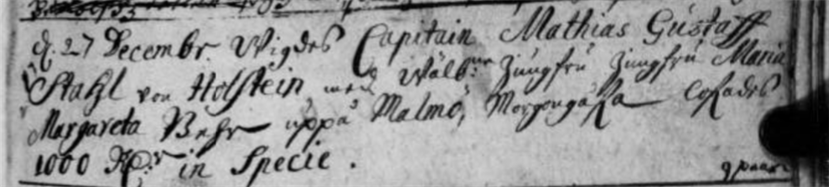 d. 27 Decembr. Wigdes Capitain Mathias Gustaff
Stahl von Holstein med Wälb:ne Jungfru Jungfru Maria
Margareta Behr uppå Malmö, Morgongåfwa lofades
1000 Rd:r in Specie.
9 paar.